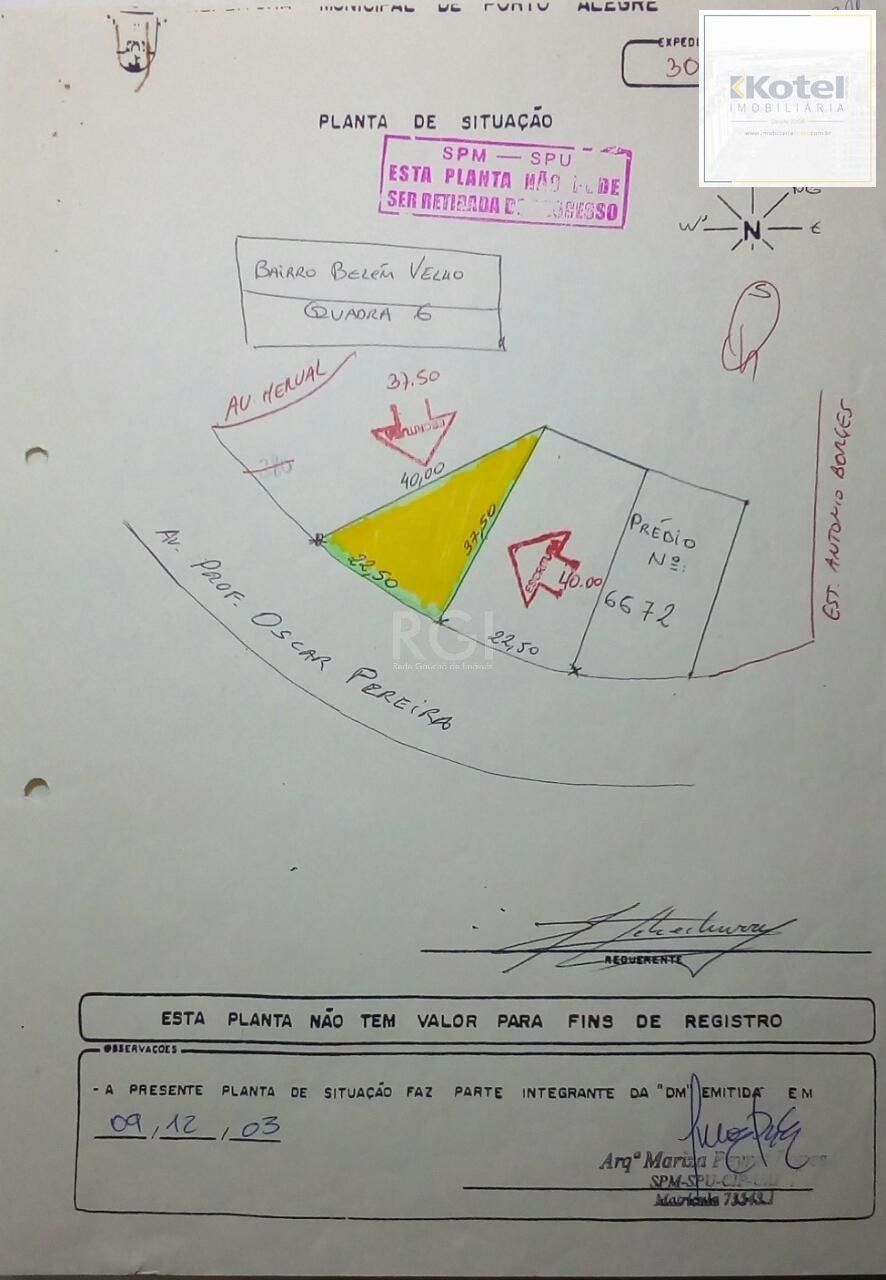 MUNICIPAL DE PORTO ALEGRE
30
Kotel
IMOBILIÁRIA
Desde 2004
PLANTA DE SITUAÇÃO
SPM — SPU
ESTA PLANTA NÃO PODE
SER RETIRADA DO PROCESSO
W N E
BAIRRO BELÉM VELHO
QUADRA 6
S
AV HERVAL
37.50
ESCRITURA
40,00
37,50
22,50
ESCRITURA
40.00
22,50
PRÉDIO
Nº:
6672
EST. ANTONIO BORGES
AV. PROF. OSCAR PEREIRA
RGI
Rede Gaúcha de Imóveis
REQUERENTE
ESTA PLANTA NÃO TEM VALOR PARA FINS DE REGISTRO
OBSERVAÇÕES
- A PRESENTE PLANTA DE SITUAÇÃO FAZ PARTE INTEGRANTE DA "DM" EMITIDA EM
09, 12, 03
Arqª Mariza